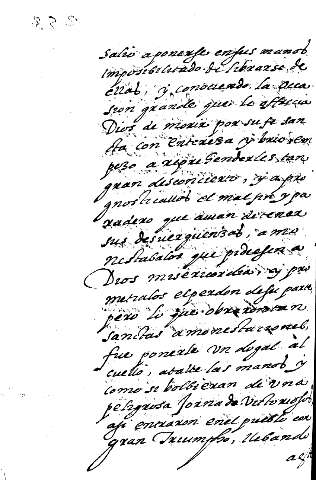 Salio a ponerse en sus manos
imposibilitado de librarse de
ellas, y conociendo la occa
sion grande que le ofrecia
Dios de morir por su fe san
ta con entereza y brio em
pezo a reprehenderles, tan
gran desconcierto, y a pro
gnosticallos el mal fin y pa
radero que avian de tener
sus desverguenzas, a mo
nestabalos que pidiesen a
Dios misericordia, y pro
metialos el perdon de su parte
pero lo que obraron tan
sanctas amonestaciones,
fue ponerle un dogal al
cuello, atalle las manos y
como si bolbieran de una
peligrosa Jornada Victoriosos
asi entraron en el pueblo con
gran Triumpho, llebando